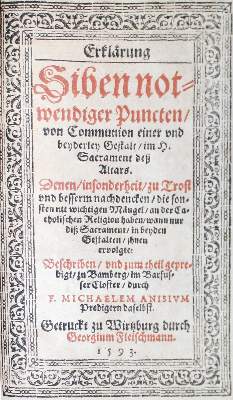 Erklärung
Siben not-
wendiger Puncten/
von Communion einer vnd
beyderley Gestalt/im H.
Sacrament deß
Altars.
Denen/insonderheit/zu Trost
vnd besserm nachdencken/die son-
sten nit wichtigen Mängel/an der Ca-
tholischen Religion haben/wann nur
diß Sacrament/in beyden
Gestalten/jhnen
ervolgte:
Beschriben/vnd zum theil gepre-
digt/zu Bamberg/im Barfus-
ser Closter/durch
F. MICHAELEM ANISIVM
Predigern daselbst.
Getruckt zu Wirtzburg durch
Georgium Fleischmann.
1593.